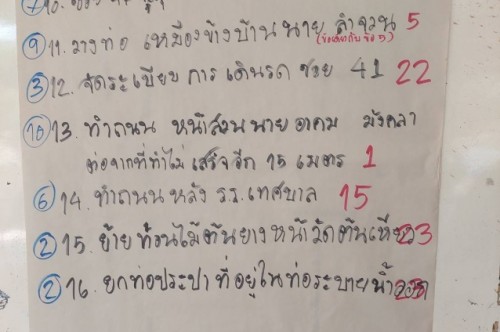 ⑨ 11. วางท่อ เหมืองข้างบ้าน นาย ลำจวน 5
③ 12. จัดระเบียบ การ เดินรถ ซอย 41 22
⑩ 13. ทำถนน หน้าสวน นาย อาคม มังคลา
ต่อจากที่ทำไม่ เสร็จ อีก 15 เมตร 1
⑥ 14. ทำถนน หลัง รร.เทศบาล 15
② 15. ย้าย ท่อนไม้ต้นยาง หน้าวัดต้นเหียว 23
② 16. ยกท่อประปา ที่อยู่ในท่อระบายน้ำออก